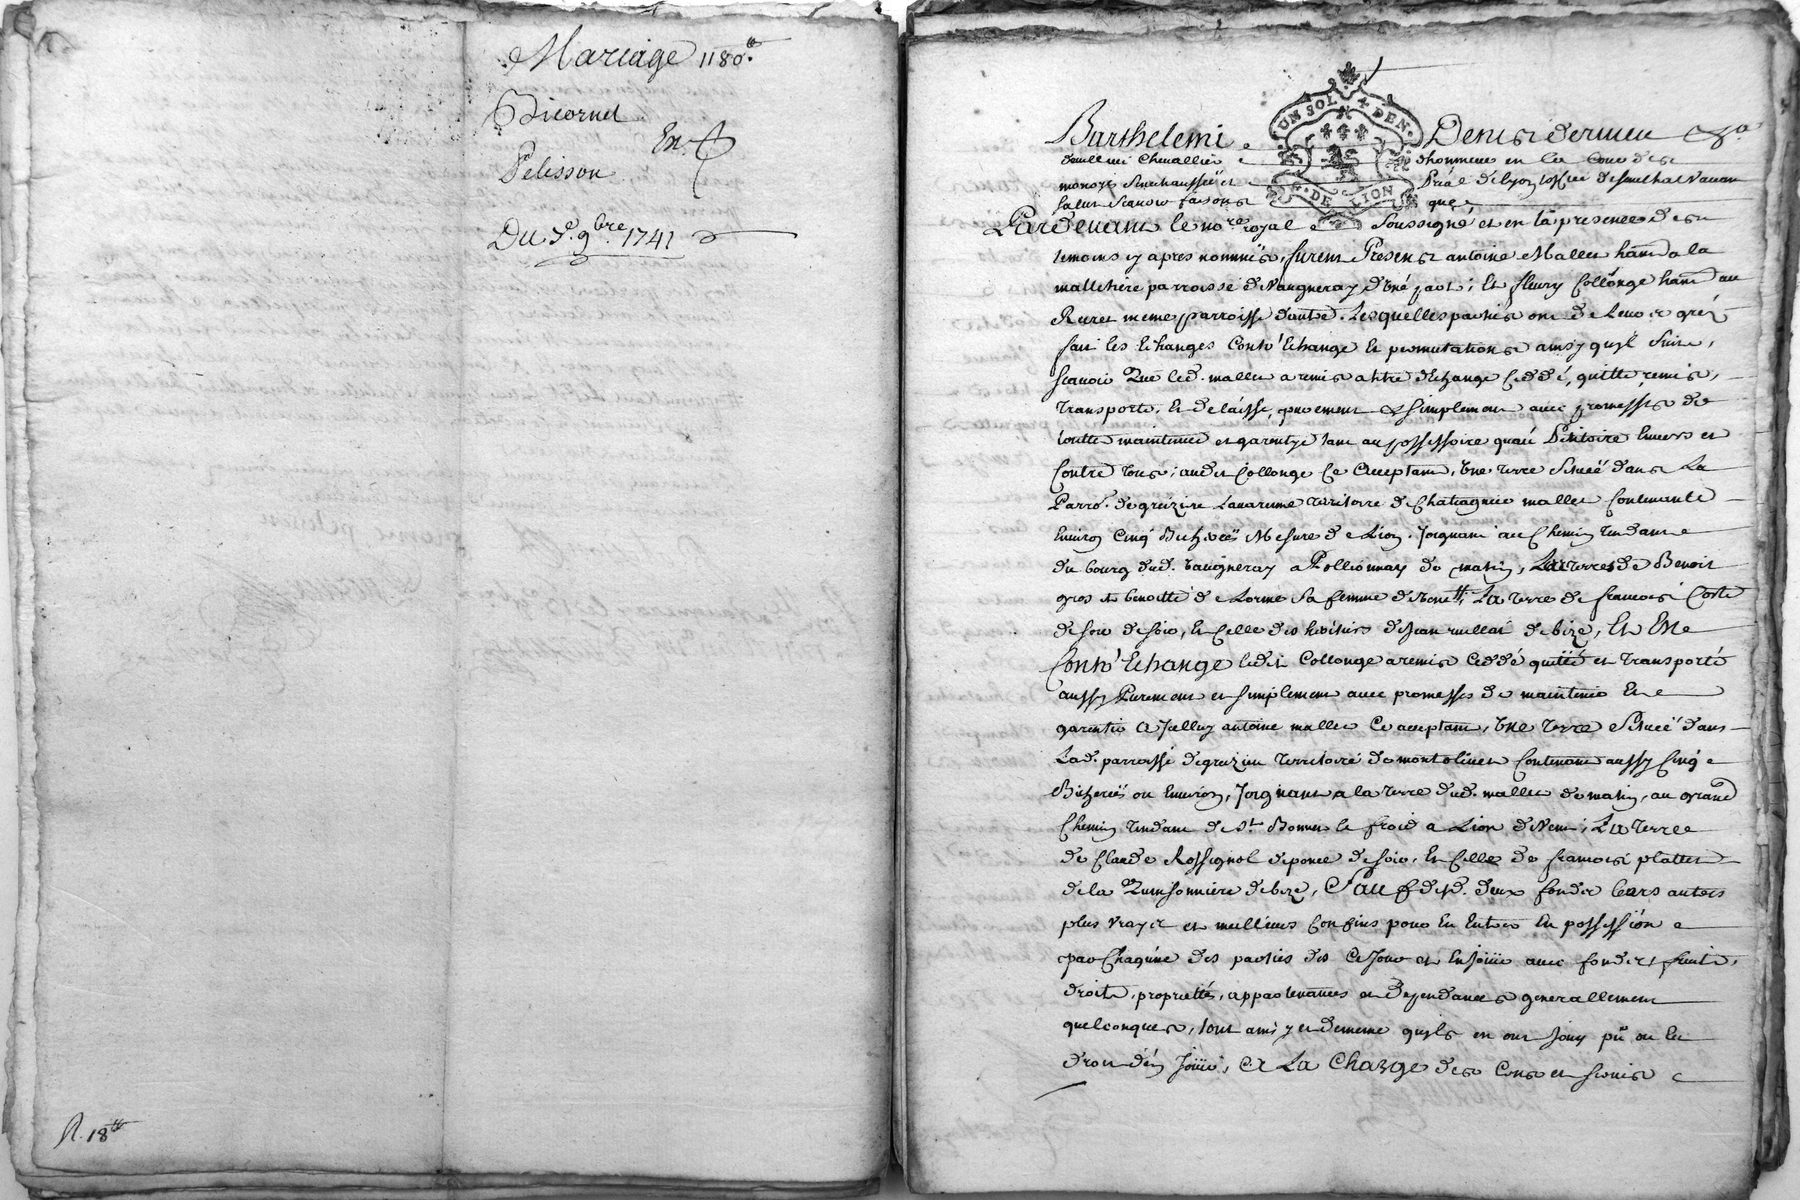 Mariage 1180.tt
Bicornet
En.
Pelisson
Du 5e. 9bre. 1741
R. 18tt
UN SOL 4 DEN.
DE LION
Barthelemi Denis
Chevallier dhonneur en la Cour des
monoyes Senechaussée et de Lyon
Salut Scavoir faisons que
Pardevant le nore. royal Soussigné et en la presence des
temoins cy apres nommés, furent Presens antoine Mallet hant. a la
mallthiere parroisse de Vaugneray d'une part; Et fleury Collonge hant. au
Ruret meme parroisse dautre. Lesquelles parties ont de Leur gré
fait les Echanges Contr'Echange Et permutations ainsy quil Suit,
scavoir Que led. mallet a remis a titre d'Echange Ceddé, quitté, remis,
Transporté, Et delaissé, purement & simplement avec promesses de
toutte maintenue et garentye tant au possessoire quau Petitoire Envers et
Contre tous; audit Collonge Ce Acceptant, Une terre Scituée dans La
Parro. de grézieu Lavarenne territoire de Chatagnier mallet Contenante
Environ Cinq Bicherées Mesure de Lion. Joignant au Chemin Tendant
du bourg dud. Vaugneray a Pollionnay de matin, La terre de Benoit
gros et benoitte de Lorme Sa femme de Vent, La terre de francois Coste
de soir, Et Celle des heritiers de Jean de bize, Et En
Contr'Echange ledit Collonge a remis Ceddé quitté et Transporté
aussy Purement et simplement avec promesses de maintenir Et
garentir a Icelluy antoine mallet Ce acceptant, Une terre Scituée dans
Lad. parroisse de grezieu Territoire de montolivet Contenant aussy Cinq
Bicherées ou Environ, Joignant a la terre dud. mallet de matin, au grand
Chemin tendant de St. Bonnet le froid a Lion de Vent, La terre
de Claude Rossignol de soir, Et Celle de francois plattet
de la Quinsonniere de bize, Sauf desd. deux fonds leurs autres
plus vrays et meilleurs Confins pour En Entrer En possession
par Chaqune des parties des Ce Jour et En Jouir avec fonds, fruits,
droits, proprietés, appartenances et Dependances generallement
quelconques, tout ainsy et de meme quils en ont Jouy pû ou dû
droit d'en Jouir, A La Charge des Cens et servis